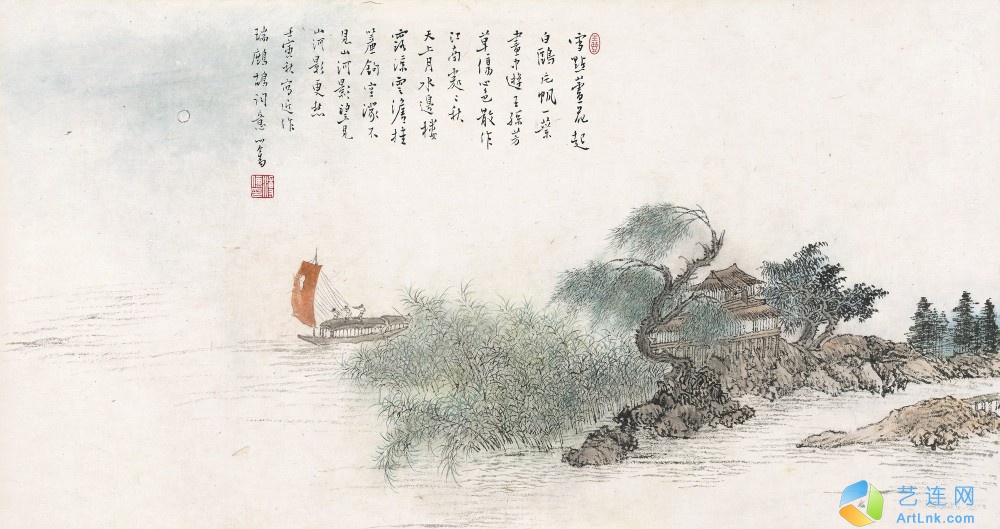 雪點蘆花起
白鷗片帆一葉
畫中遊王孫芳
草傷心色散作
江南處〻秋
天上月水邊樓
露涼雲澹挂
簾鉤空濛不
見山河影望見
山河影更愁
壬寅秋寫近作
瑞鷓鴣詞意心畬
艺连网
ArtLnk.com